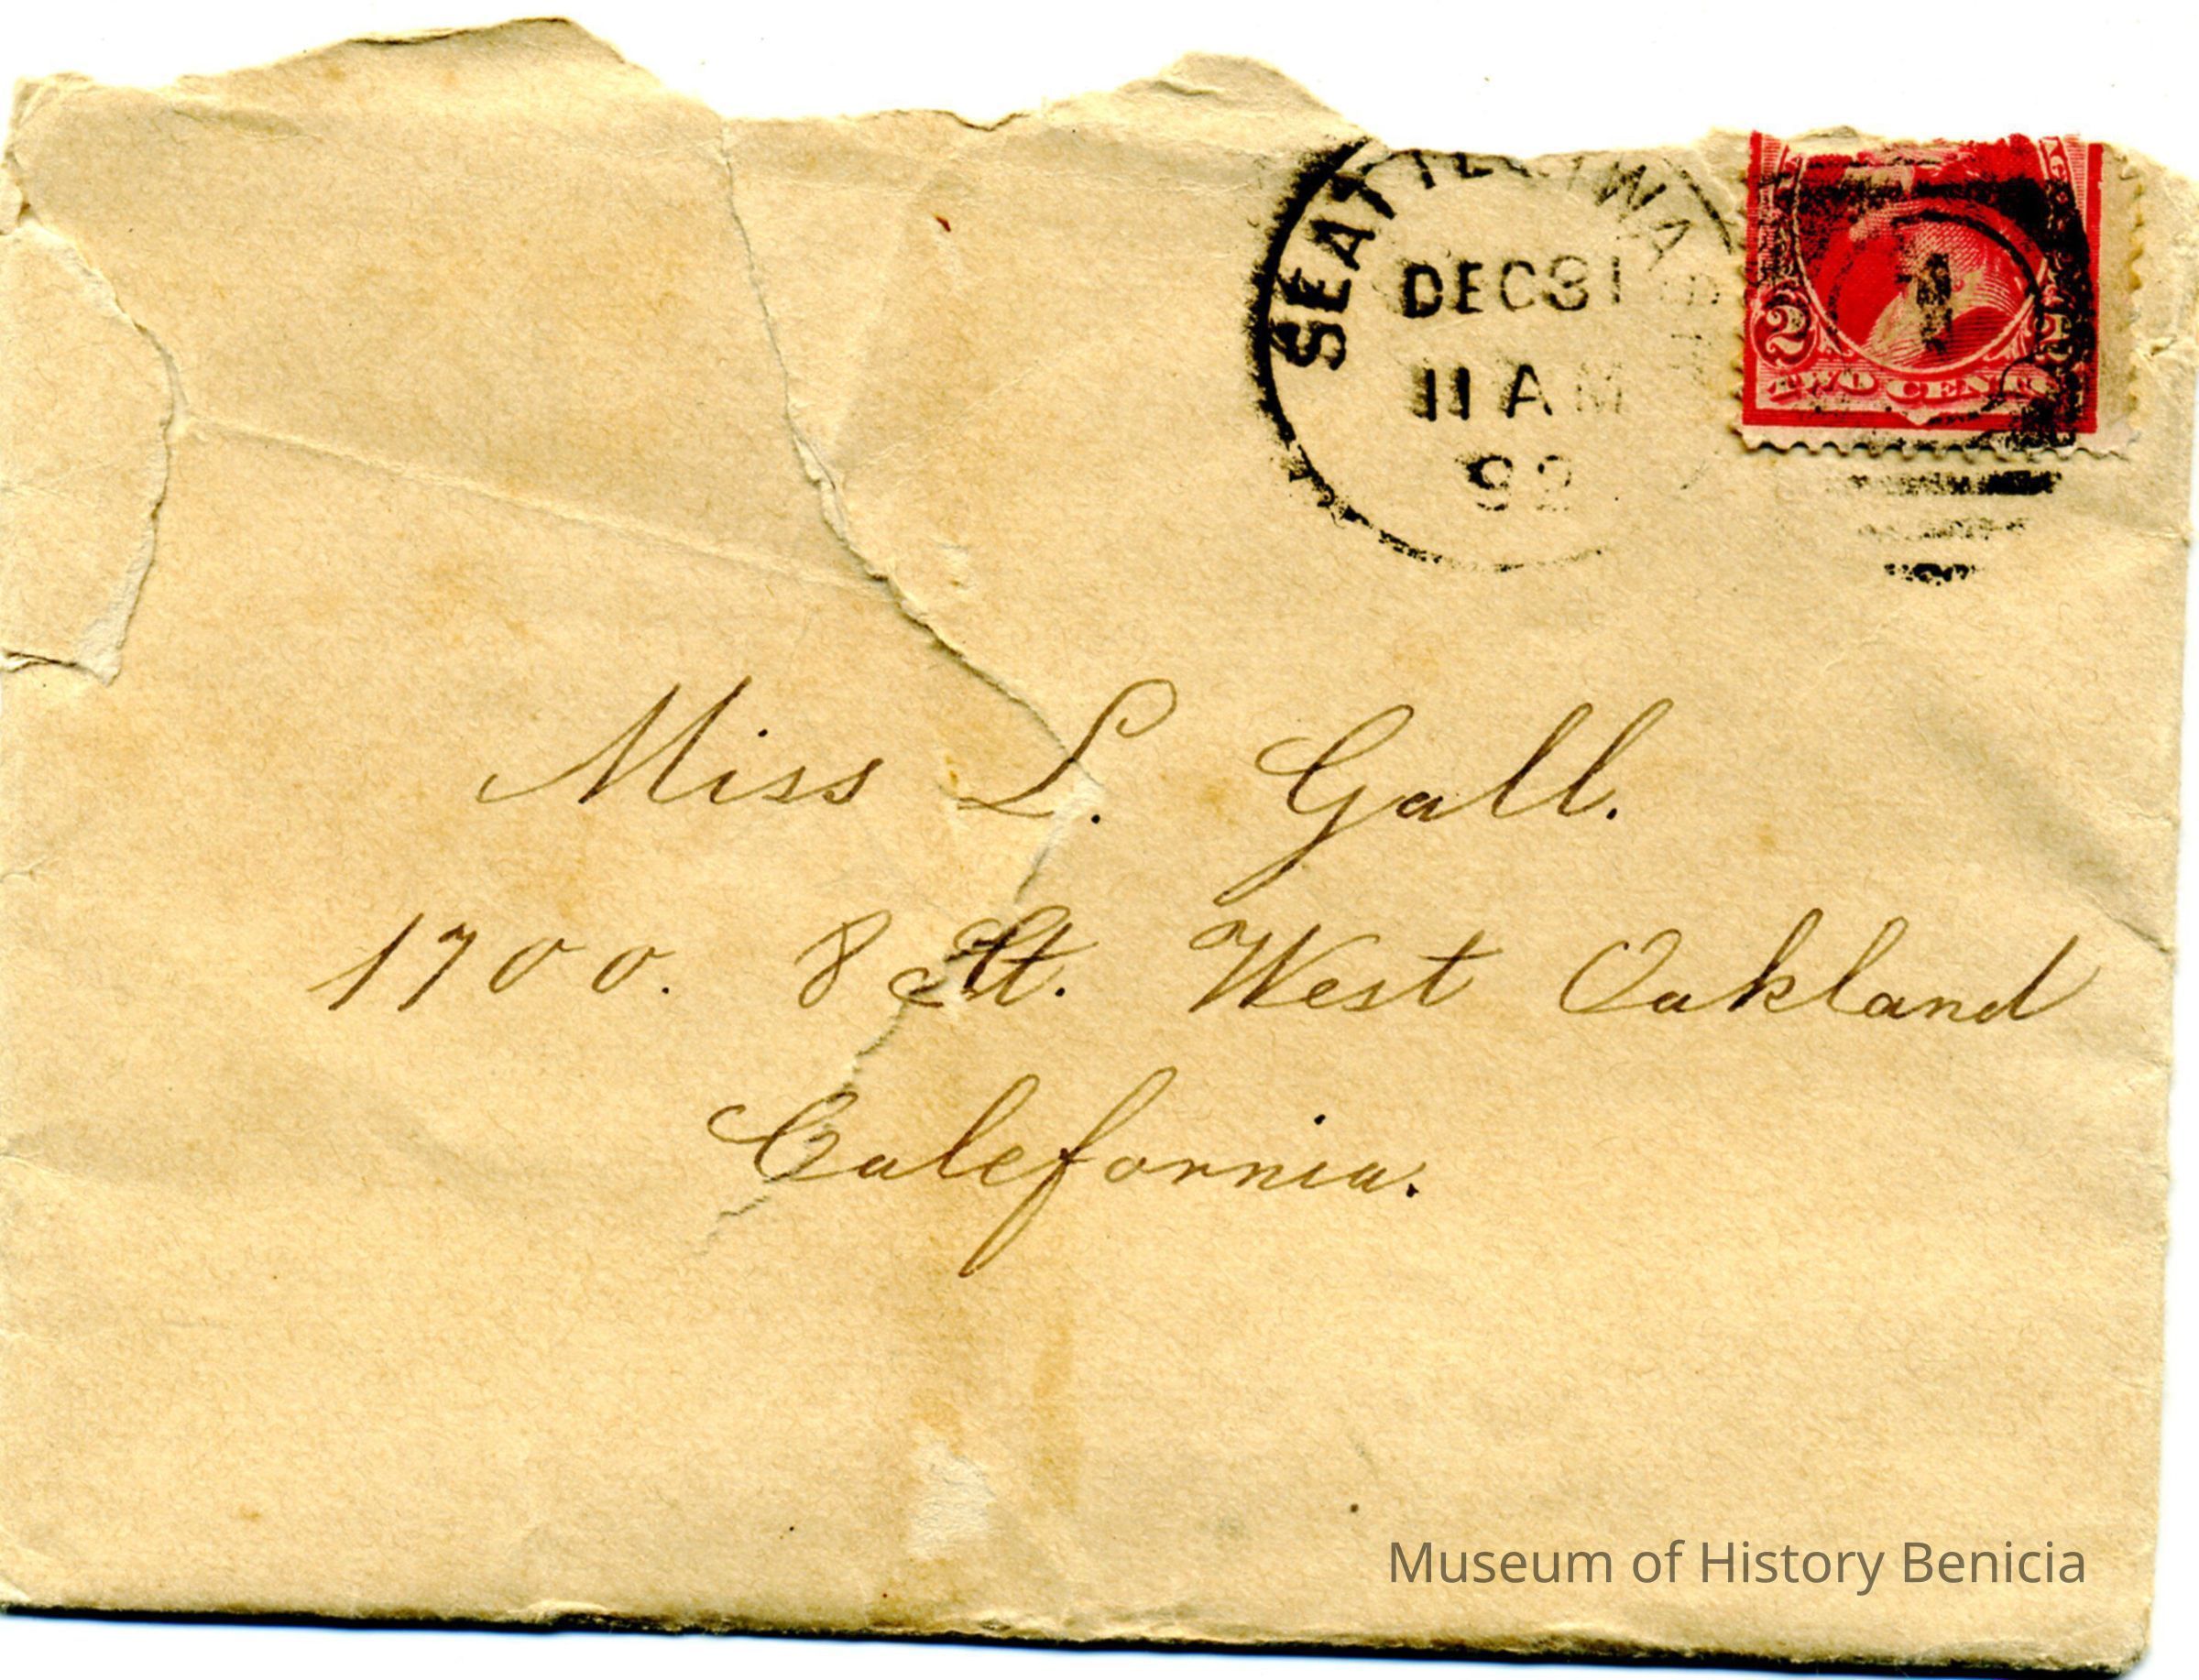 SEATTLE, WA
DEC 31
11 AM
92
1
2 2
TWO CENTS
Miss L. Gall.
1700. 8 St. West Oakland
Calefornia.
Museum of History Benicia